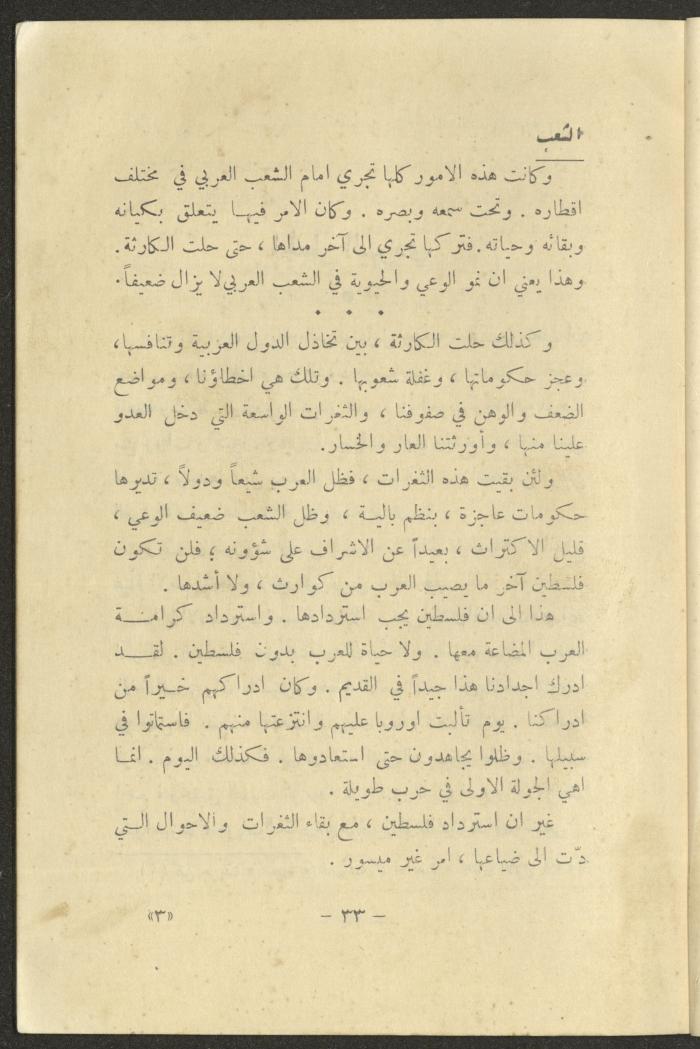 الشعب
وكانت هذه الامور كلها تجري امام الشعب العربي في مختلف
اقطاره . وتحت سمعه وبصره . وكان الامر فيهـا يتعلق بكيانه
وبقائه وحياته . فتركها تجري الى آخر مداها ، حتى حلت الكارثة .
وهذا يعني ان نمو الوعي والحيوية في الشعب العربي لا يزال ضعيفاً .
• • •
وكذلك حلت الكارثة ، بين تخاذل الدول العربية وتنافسها ،
وعجز حكوماتها ، وغفلة شعوبها . وتلك هي اخطاؤنا ، ومواضع
الضعف والوهن في صفوفنا ، والثغرات الواسعة التي دخل العدو
علينا منها ، وأورثتنا العار والخسار .
ولئن بقيت هذه الثغرات ، فظل العرب شيعاً ودولاً ، تديرها
حكومات عاجزة ، بنظم باليـة ، وظل الشعب ضعيف الوعي ،
قليل الاكتراث ، بعيداً عن الاشراف على شؤونه ؛ فلن تكون
فلسطين آخر ما يصيب العرب من كوارث ، ولا أشدها .
هذا الى ان فلسطين يجب استردادها . واسترداد كرامـــة
العرب المضاعة معها . ولا حياة للعرب بدون فلسطين . لقـــد
ادرك اجدادنا هذا جيداً في القديم . وكان ادراكهم خـيراً من
ادراكنا . يوم تألبت اوروبا عليهم وانتزعتها منهم . فاستماتوا في
سبيلها . وظلوا يجاهدون حتى استعادوها . فكذلك اليوم . انمـا
اهي الجولة الاولى في حرب طويلة .
غير ان استرداد فلسطين ، مع بقاء الثغرات والاحوال الـتي
دّت الى ضياعها ، امر غير ميسور .
– ٣٣ – «٣»